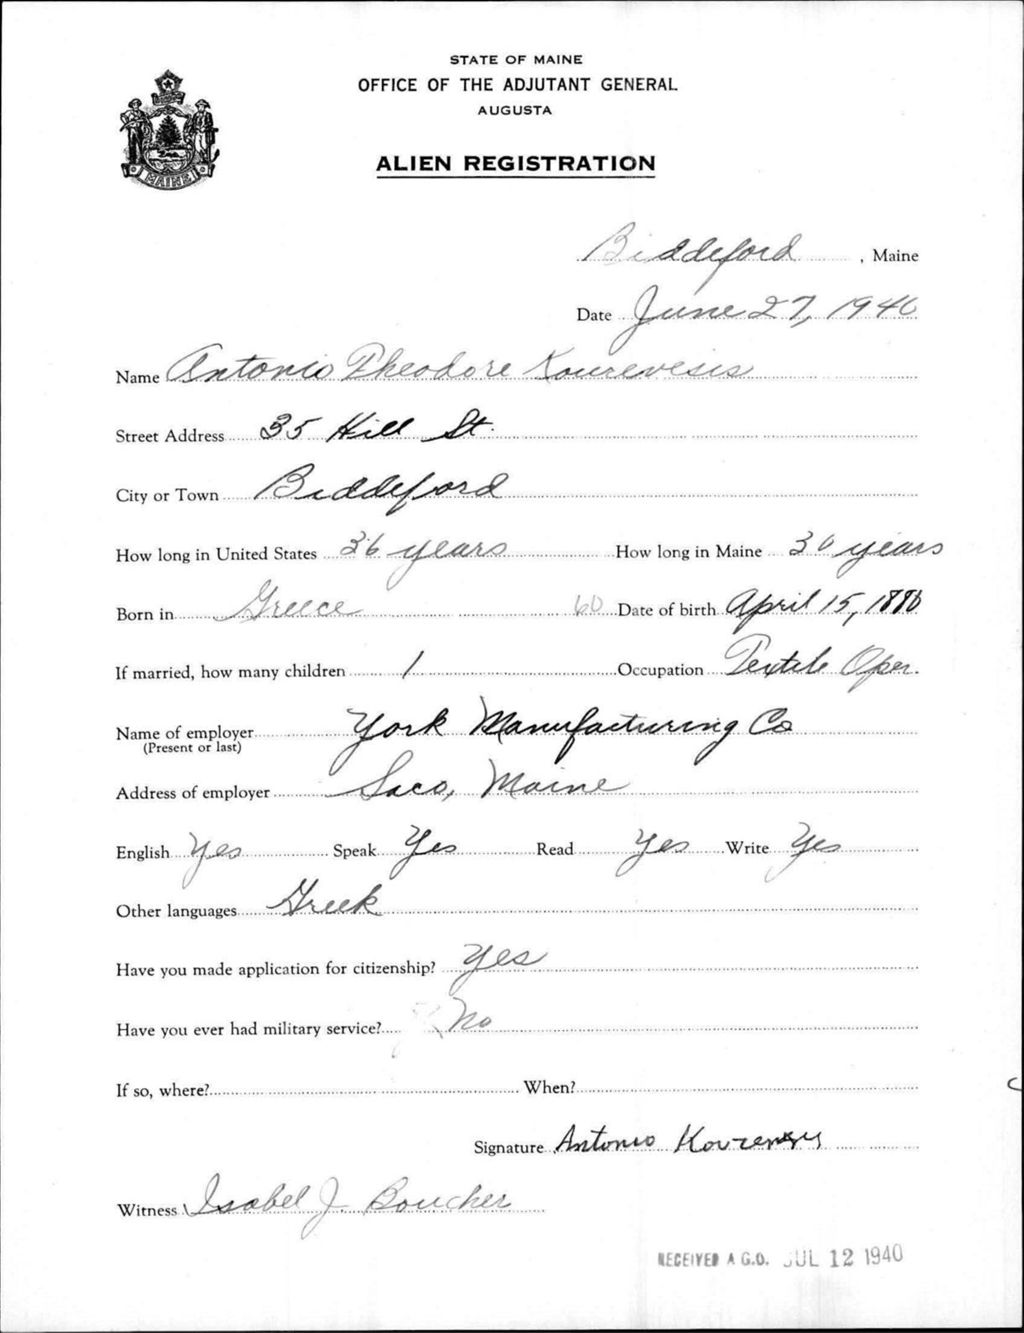 STATE OF MAINE
OFFICE OF THE ADJUTANT GENERAL
AUGUSTA
ALIEN REGISTRATION
MAINE
Biddeford, Maine
Date June 27, 1940
Name Antonio Theodore Kourevesis
Street Address 35 Hill St.
City or Town Biddeford
How long in United States 36 years How long in Maine 30 years
Born in Greece 60 Date of birth April 15, 1880
If married, how many children 1 Occupation Textile Oper.
Name of employer York Manufacturing Co
(Present or last)
Address of employer Saco, Maine
English Yes Speak Yes Read Yes Write Yes
Other languages Greek
Have you made application for citizenship? Yes
Have you ever had military service? No
If so, where? When?
Signature Antonio
Witness Isabel J. Boucher
RECEIVED A.G.O. JUL 12 1940